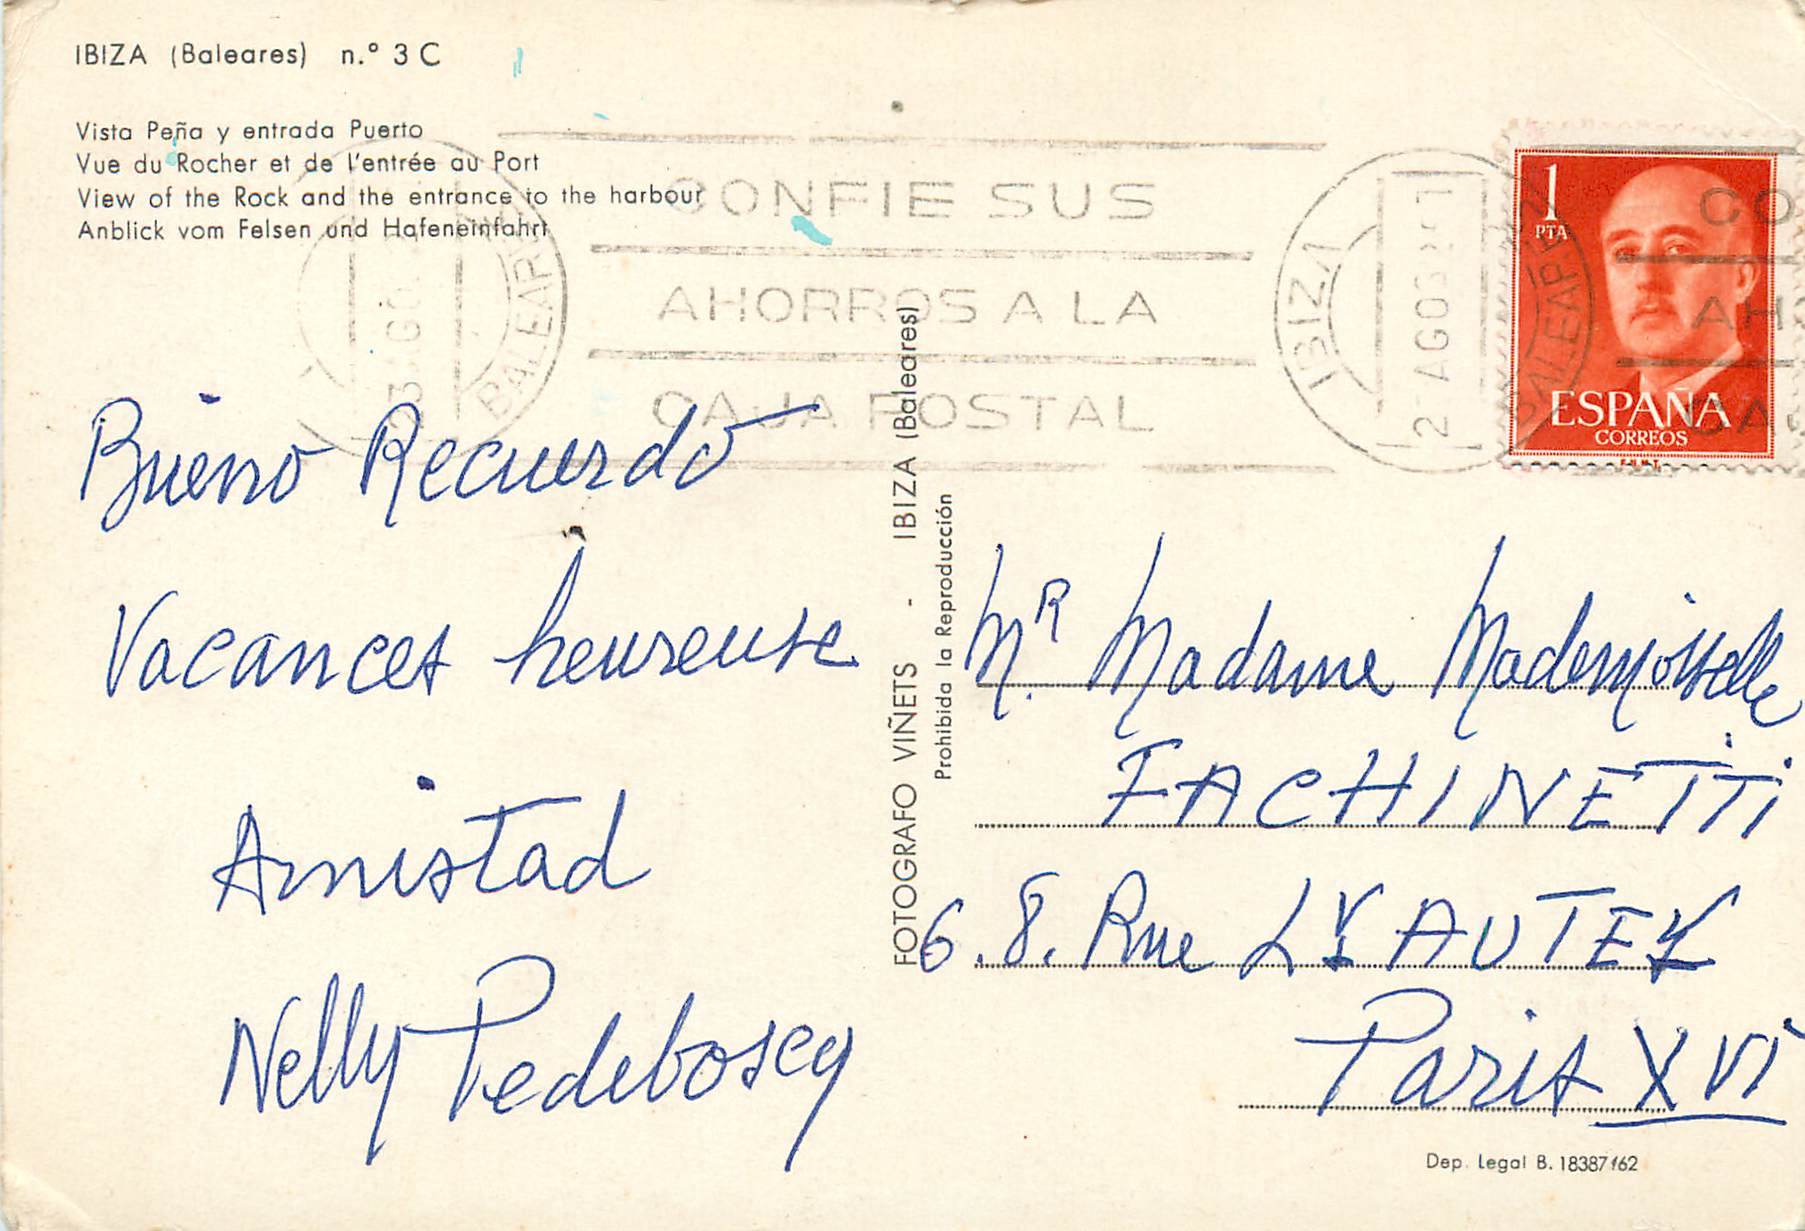 IBIZA (Baleares) n.º 3 C
Vista Peña y entrada Puerto
Vue du Rocher et de l'entrée au Port
View of the Rock and the entrance to the harbour
Anblick vom Felsen und Hafeneinfahrt
CONFIE SUS
AHORROS A LA
CAJA POSTAL
AGO
BALEARES
IBIZA
2 AGO
BALEARES
1
PTA
ESPAÑA
CORREOS
F.N.M.T.
CO
AH
CA
Bueno Recuerdo
Vacances heureuse
Amistad
Nelly Pedeboscq
FOTOGRAFO VIÑETS - IBIZA (Baleares)
Prohibida la Reproducción
MR. Madame Mademoiselle
FACHINETTI
6.8. Rue LYAUTEY
Paris XVI
Dep. Legal B. 18387/62